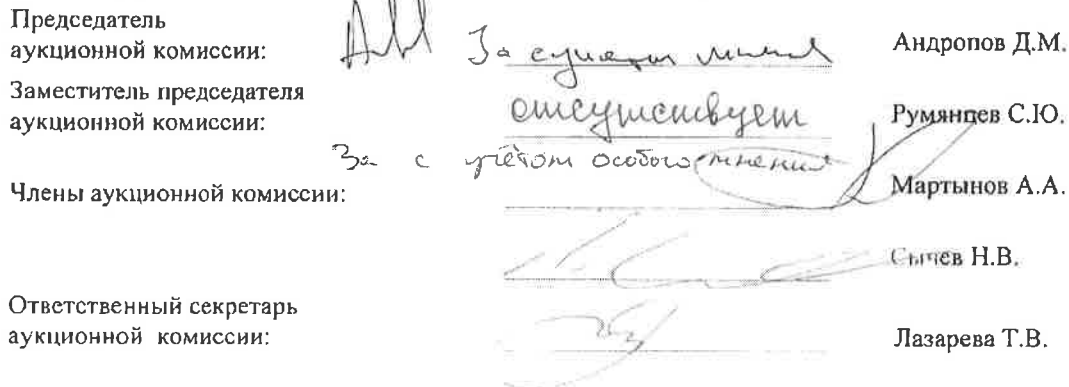 Председатель
аукционной комиссии: За с учетом мнения Андропов Д.М.
Заместитель председателя
аукционной комиссии: отсутствует Румянцев С.Ю.
За с учётом особого мнения
Члены аукционной комиссии: Мартынов А.А.
Сычев Н.В.
Ответственный секретарь
аукционной комиссии: Лазарева Т.В.